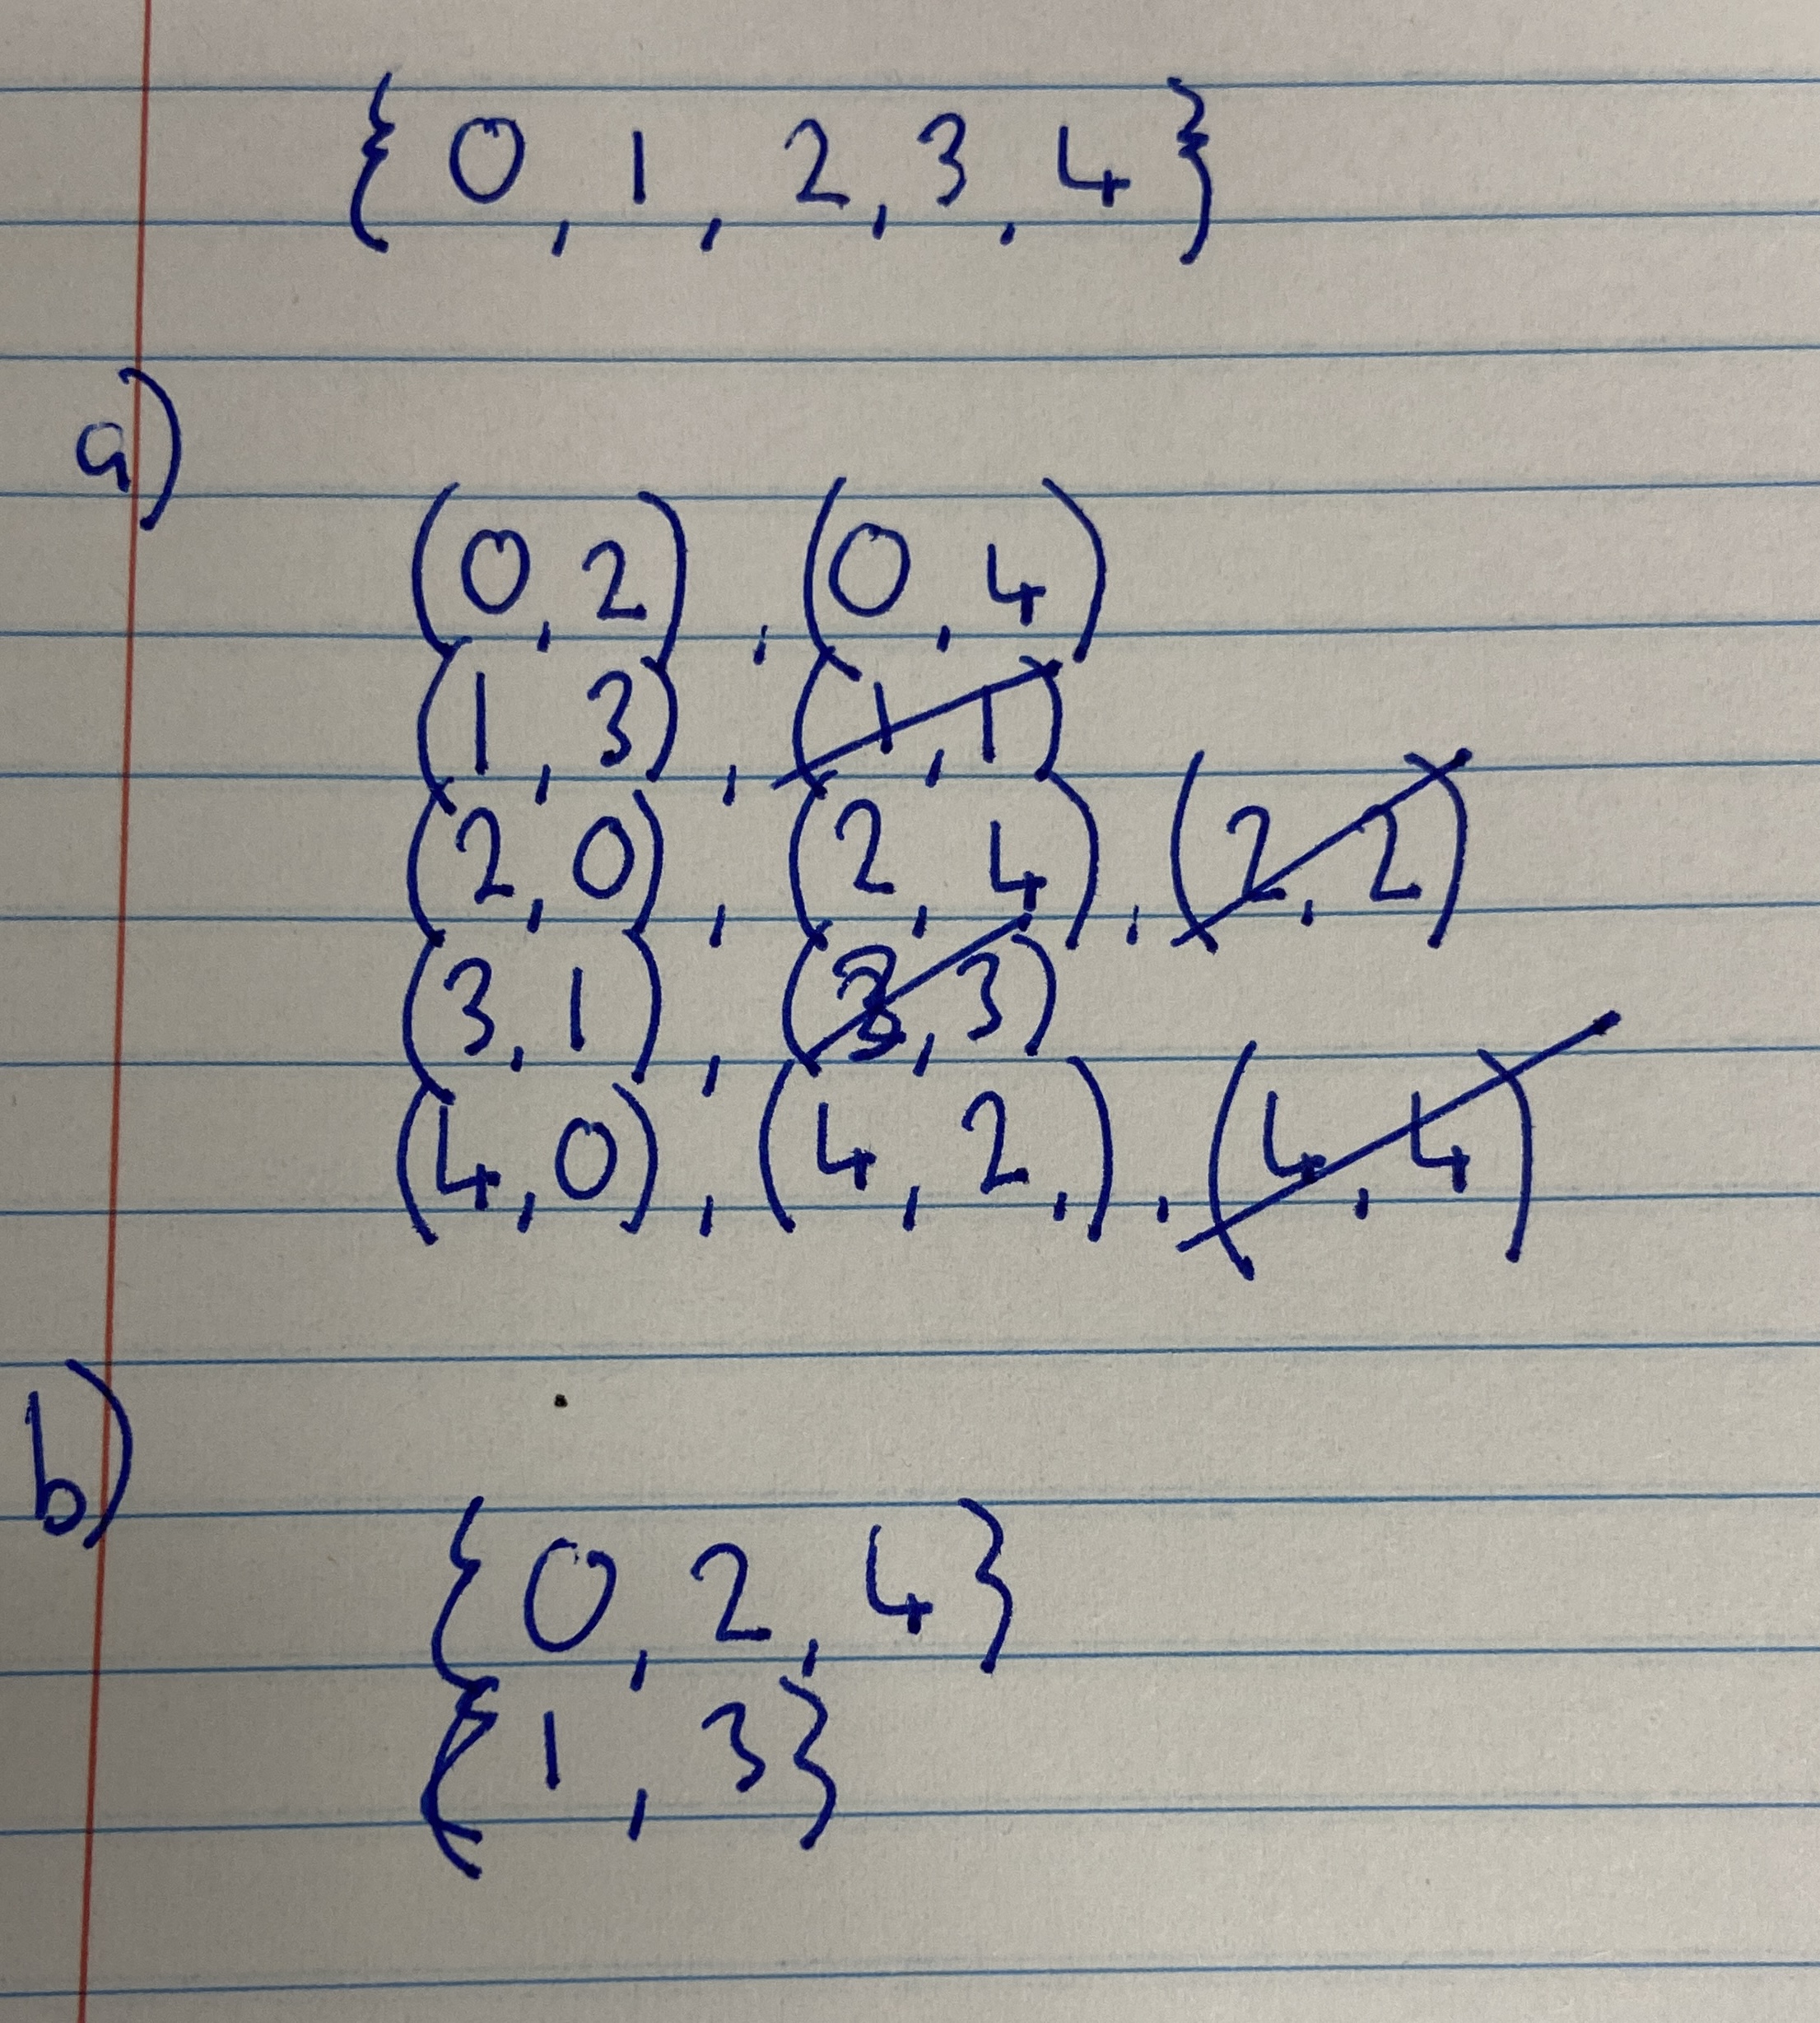 { 0, 1, 2, 3, 4 }
a)
(0, 2), (0, 4)
(1, 3), (1, 1)
(2, 0), (2, 4), (2, 2)
(3, 1), (3, 3)
(4, 0), (4, 2,), (4, 4)
b)
{0, 2, 4}
{1, 3}